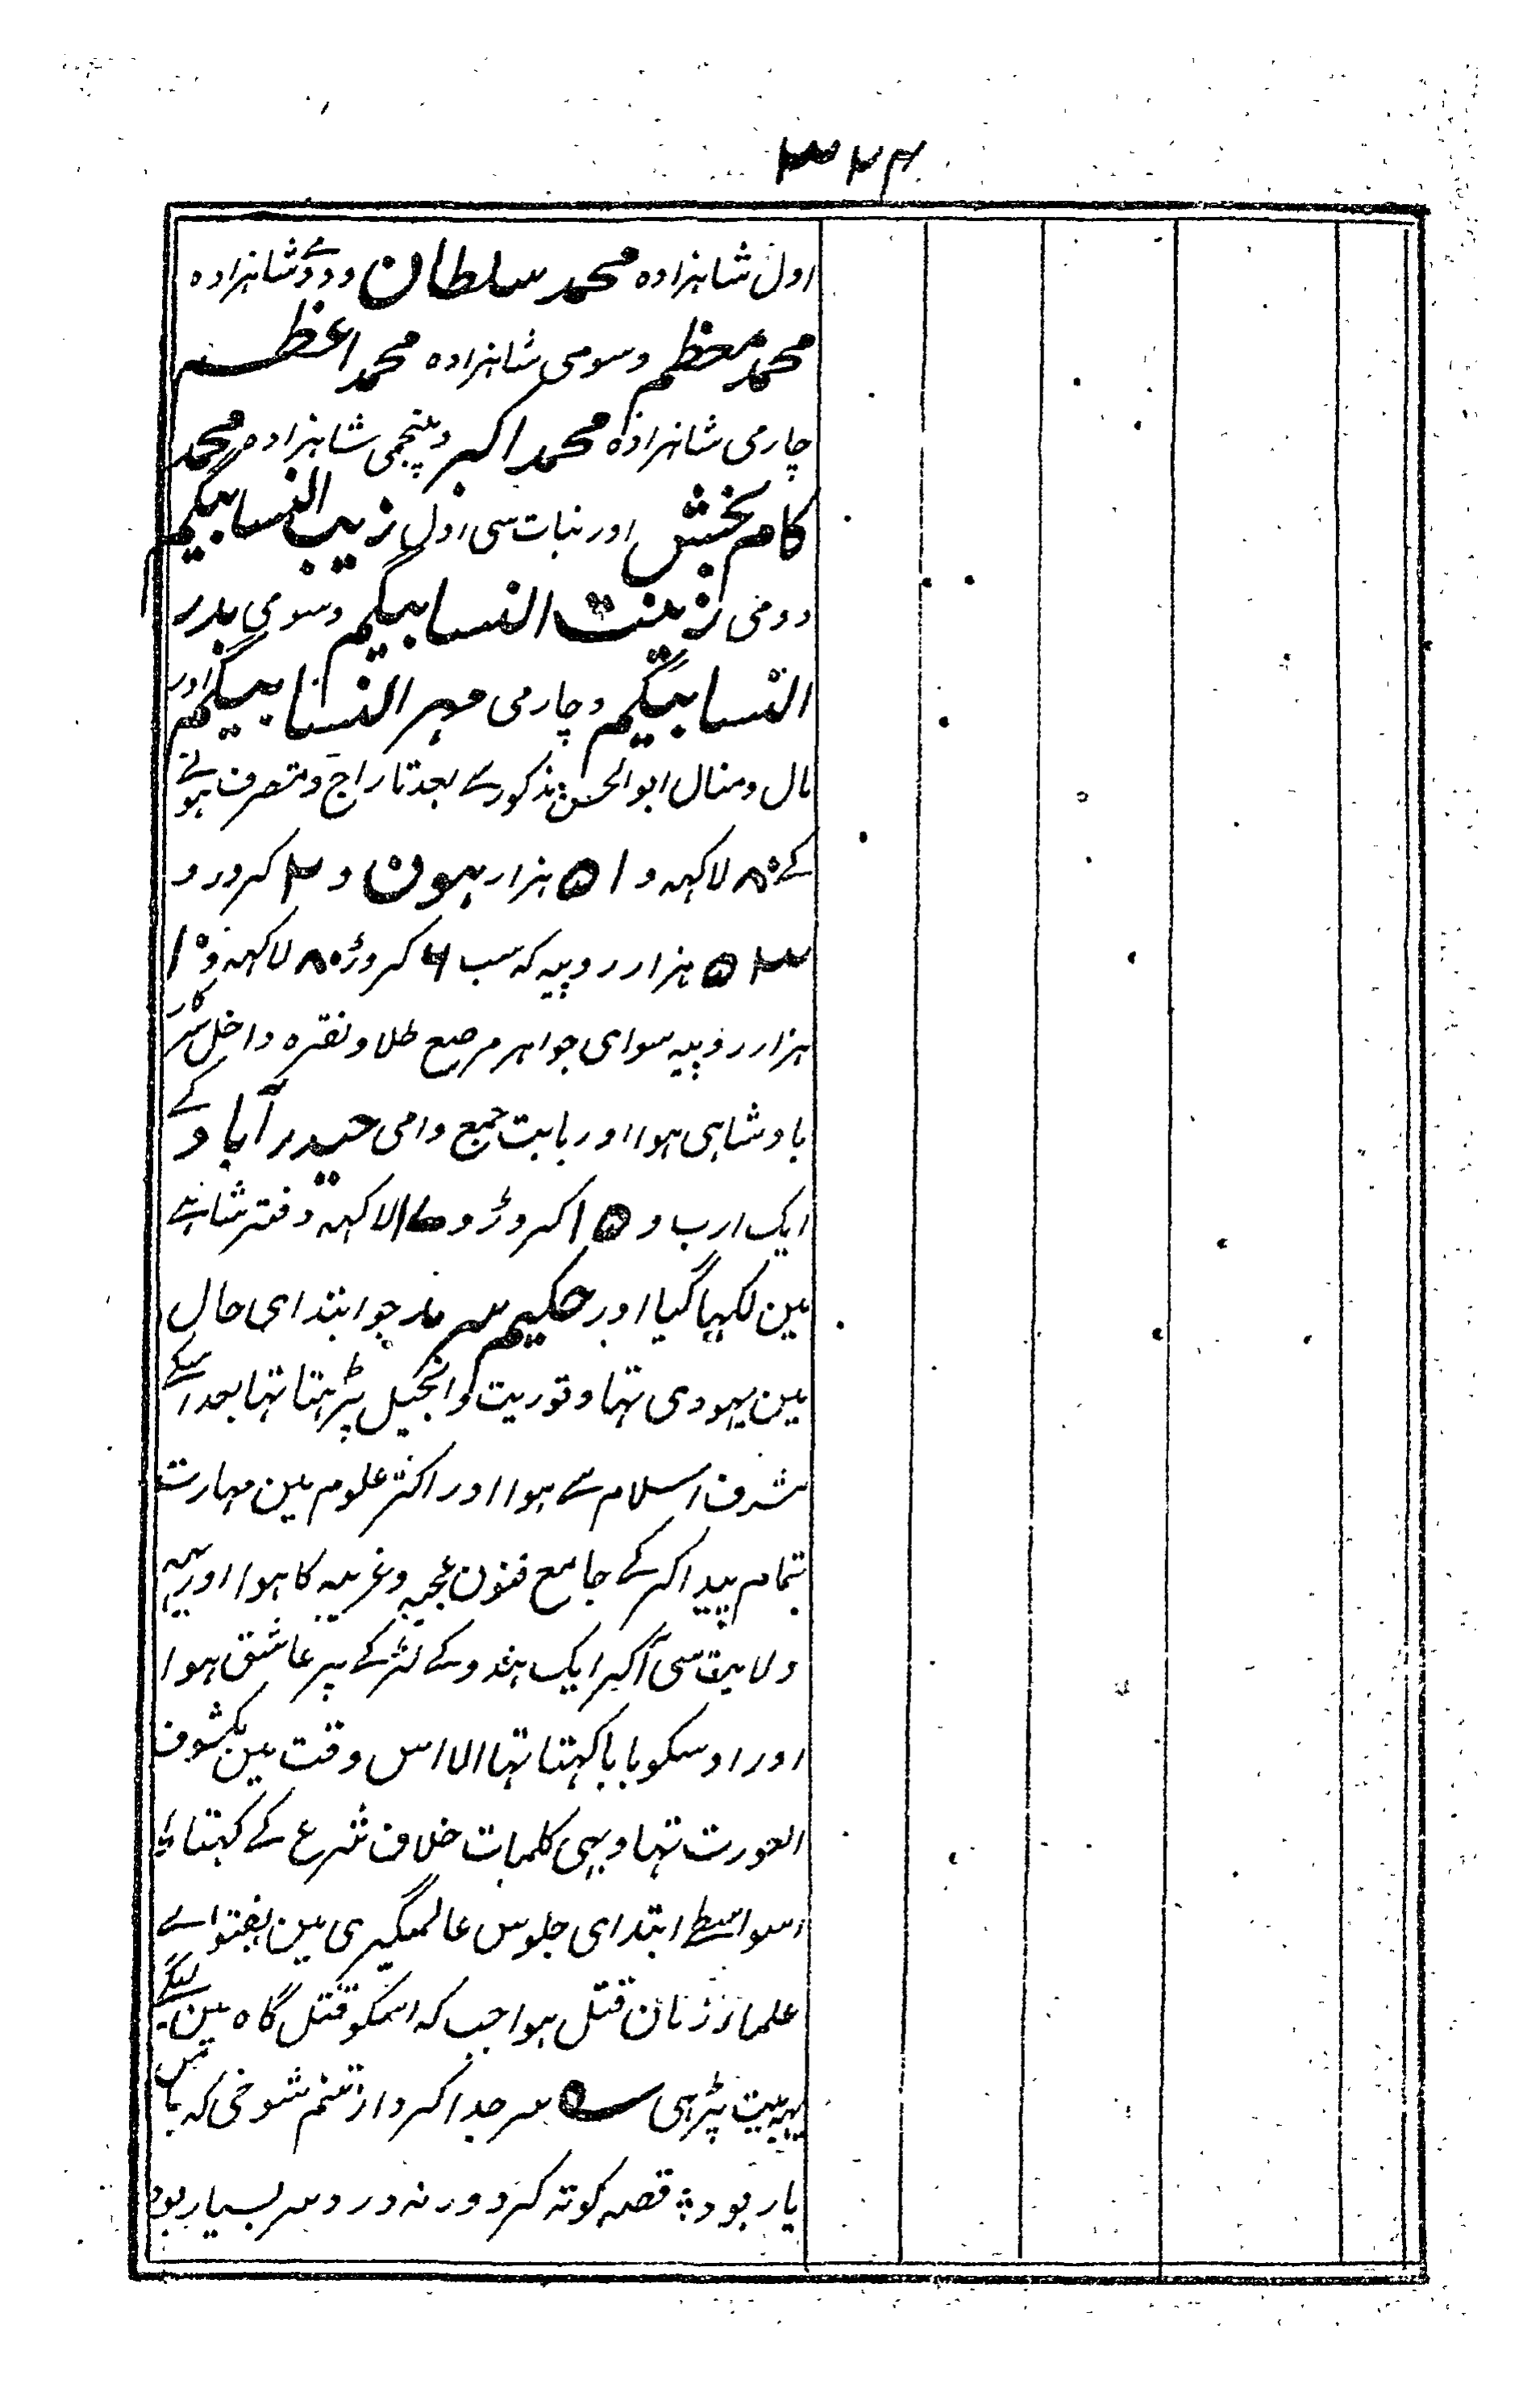 ۳۲۴
اول شاہزادہ محمد سلطان ودوی شاہزادہ
محمد معظم وسومی شاہزادہ محمد اعظم
چارمی شاہزادہ محمد اکبر وپنجمی شاہزادہ محمد
کام بخش اور بنات سی اول زیب النسا بیگم
دومی زینت النسا بیگم وسومی بدر
النسا بیگم وچارمی مہر النسا بیگم اور
مال ومنال ابوالحسن مذکور کے بعد تاراج ومتصرف ہونے
کے ۸۰ لاکہہ و ۵۱ ہزار ہون و ۲ کرور و
۵۳ ہزار روپیہ کہ سب ۶ کروڑ ۸۰ لاکہہ و ۱۰
ہزار روپیہ سوای جواہر مرصع طلا ونقرہ داخل سرکار
بادشاہی ہوا اور بابت جمع دامی حیدرآباد کے
ایک ارب و ۱۵ کروڑ و لاکہہ دفتر شاہے
مین لکہا گیا اور حکیم سرمد جو ابتدای حال
مین یہودی تہا وتوریت وانجیل پڑہتا تہا بعد اسکے
شرف اسلام سے ہوا اور اکثر علوم مین مہارت
تمام پیدا کر کے جامع فنون عجیبہ وغریبہ کا ہوا اور یہہ
ولایت سی آکر ایک ہندو کے لڑکے پر عاشق ہوا
اور اوسکو بابا کہتا تہا الا اس وقت مین مکشوف
العورت تہا وبہی کلمات خلاف شرع کے کہتا
اسواسطے ابتدای جلوس عالمگیری مین بفتواے
علما زمان قتل ہوا جب کہ اسکو قتل گاہ مین لیگئے
یہہ بیت پڑہی ؎ سر جدا کرد از تنم شوخی کہ با من
یار بود ؛ قصہ کوتہ کرد ورنہ درد سر بسیار بود